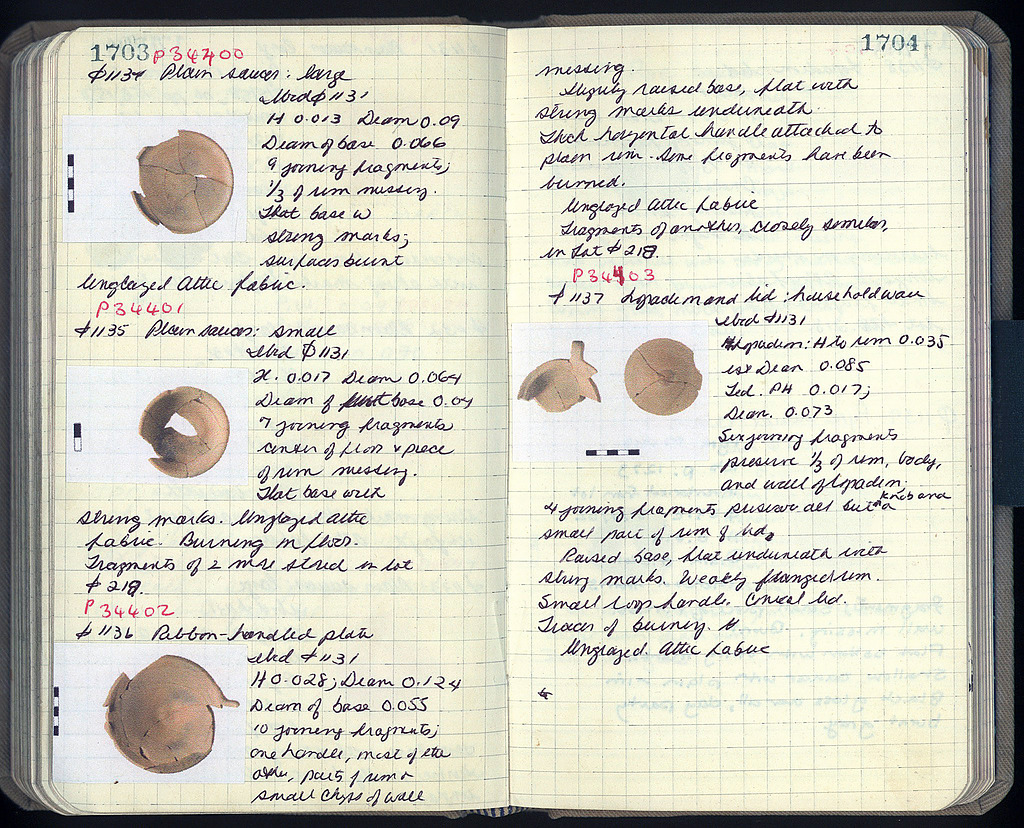 1703 P34400
¢1134 Plain saucer: large
Ibid ¢1131
H 0.013 Diam 0.09
Diam of base 0.066
9 joining fragments;
1/3 of rim missing.
Flat base w
string marks;
surfaces burnt
Unglazed Attic fabric.
P34401
¢1135 Plain saucer: small
Ibid ¢1131
H. 0.017 Diam 0.064
Diam of base 0.04
7 joining fragments
center of floor & piece
of rim missing.
Flat base with
string marks. Unglazed Attic
fabric. Burning on floor.
Fragments of 2 more stored in lot
¢ 218.
P34402
¢1136 Ribbon-handled plate
Ibid ¢1131
H 0.028; Diam 0.124
Diam of base 0.055
10 joining fragments;
one handle, most of the
other, parts of rim &
small chips of wall
1704
missing.
Slightly raised base, flat with
string marks underneath.
Thick horizontal handle attached to
plain rim. Some fragments have been
burned.
Unglazed Attic fabric
Fragments of another, closely similar,
in Lot ¢ 218.
P34403
¢1137 Lopadion and lid: household ware
Ibid ¢1131
Lopadion: H to rim 0.035
est Diam 0.085
Lid. PH 0.017;
Diam. 0.073
Six joining fragments
preserve 1/3 of rim, body,
and wall of lopadion,
4 joining fragments preserve all but knob and a
small part of rim of lid.
Raised base, flat underneath with
string marks. Weakly flanged rim.
Small loop handle. Conical lid.
Traces of burning.
Unglazed Attic fabric